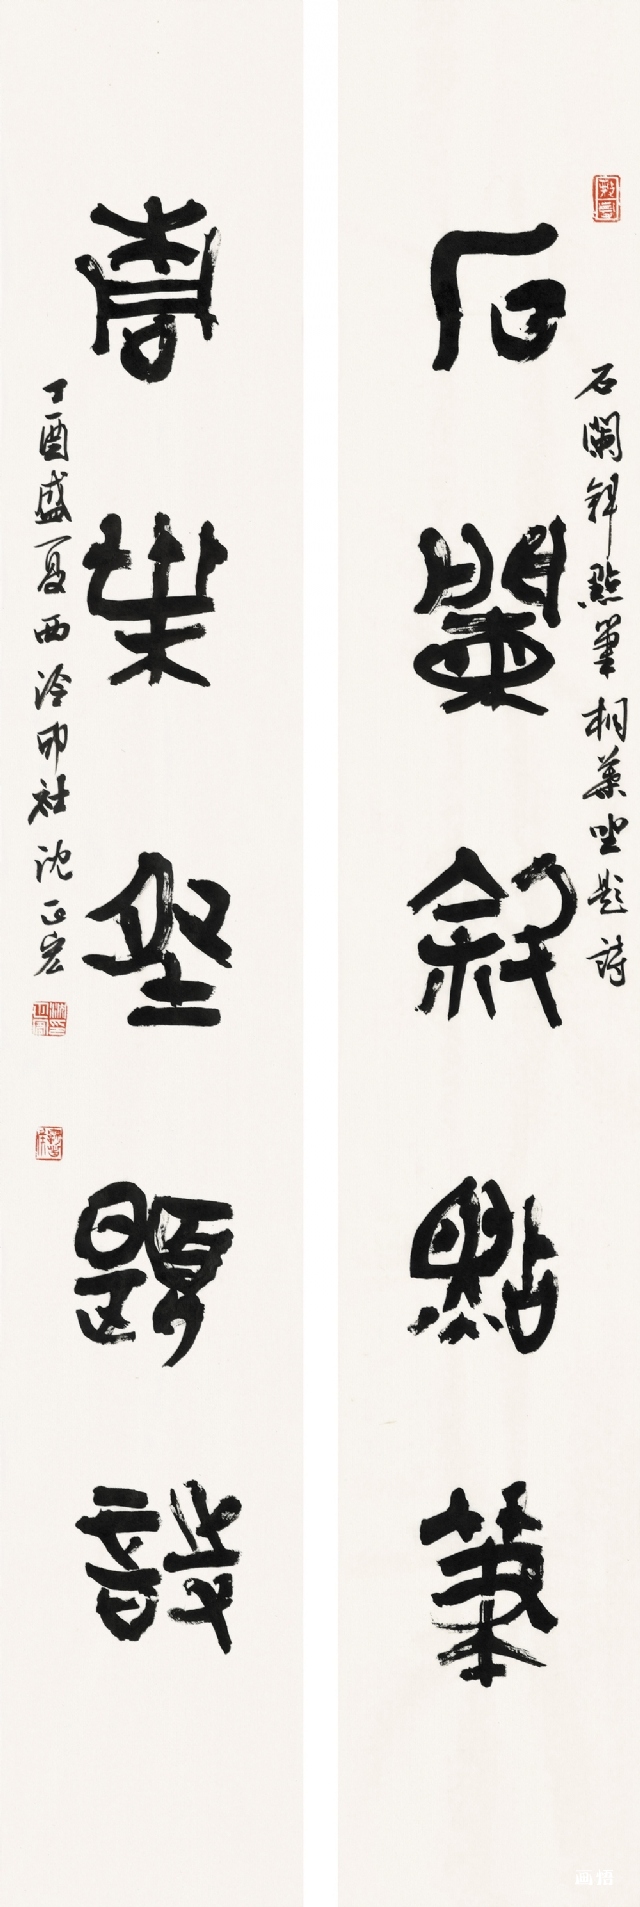 石闌斜點筆
石闌斜點筆桐葉坐題詩
桐葉坐題詩
丁酉盛夏西泠印社沈正宏
画悟